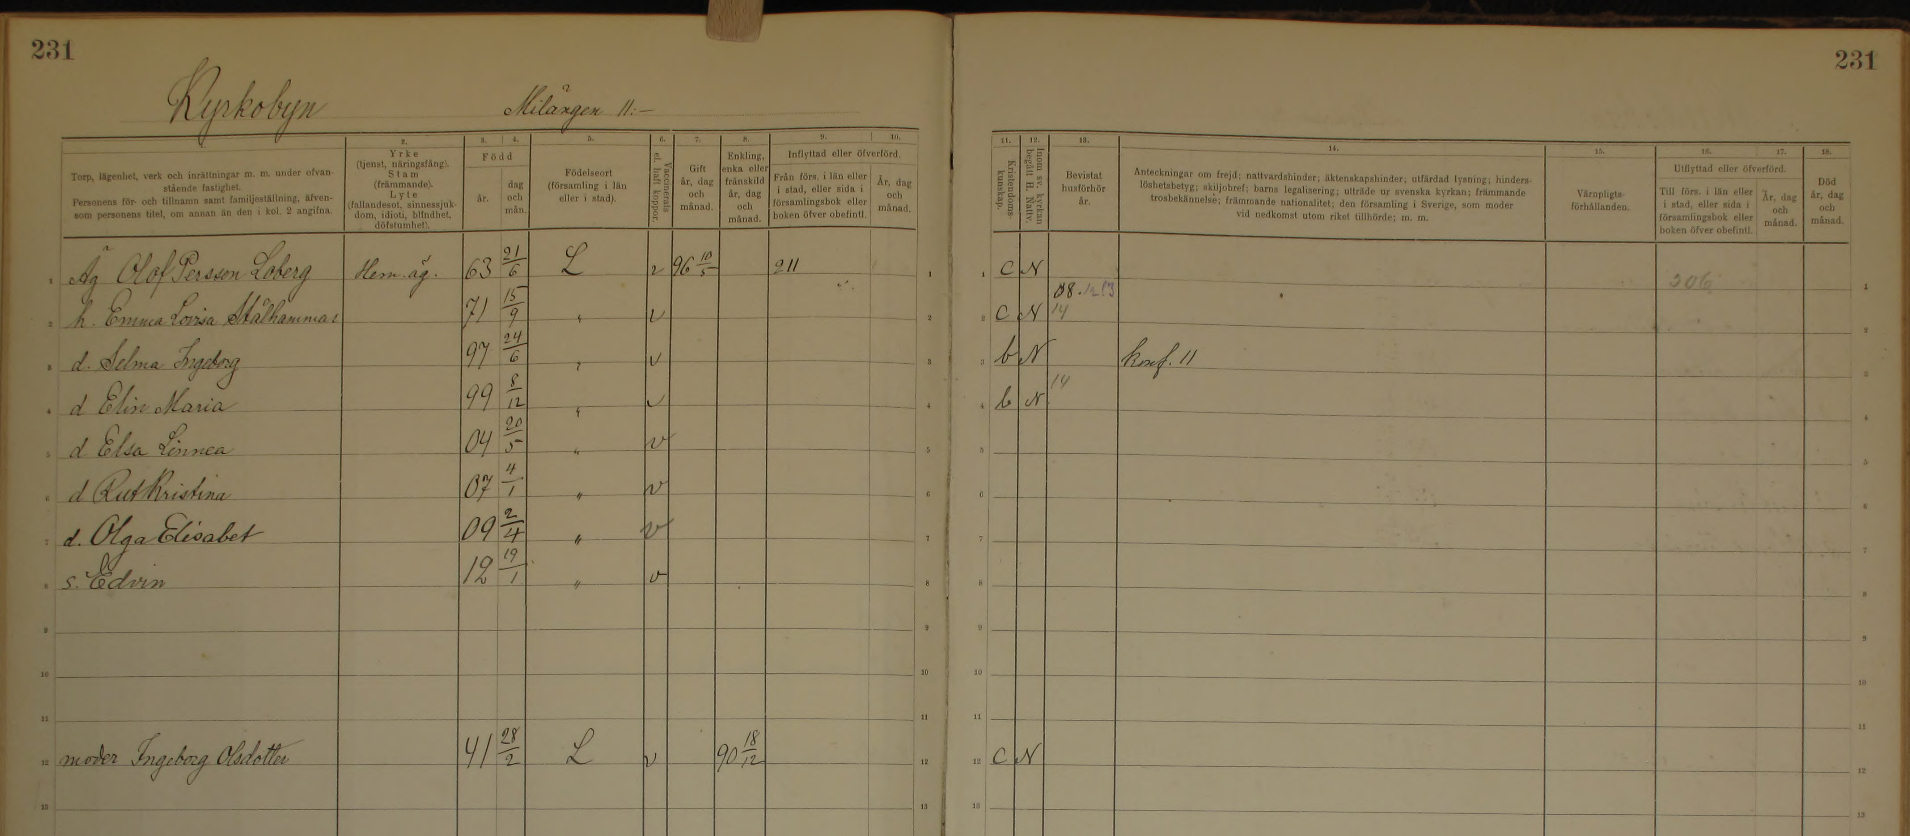 231
231
Kyrkobyn Milången 11:-
1. 2. 3. 4. 5. 6. 7. 8. 9. 10.
Torp, lägenhet, verk och inrättningar m. m. under ofvan-
stående fastighet.
Personens för- och tillnamn samt familjeställning, äfven-
som personens titel, om annan än den i kol. 2 angifna.
Yrke
(tjenst, näringsfång).
Stam
(främmande).
Lyte
(fallandesot, sinnessjuk-
dom, idioti, blindhet,
döfstumhet).
Född
år.
dag
och
mån.
Födelseort
(församling i län
eller i stad).
Vaccinerats
el. haft koppor.
Gift
år, dag
och
månad.
Enkling,
enka eller
frånskild
år, dag
och
månad.
Inflyttad eller öfverförd.
Från förs. i län eller
i stad, eller sida i
församlingsbok eller
boken öfver obefintl.
År, dag
och
månad.
11. 12. 13. 14. 15. 16. 17. 18.
Kristendoms-
kunskap.
Inom sv. kyrkan
begått H. Nattv.
Bevistat
husförhör
år.
Anteckningar om frejd; nattvardshinder; äktenskapshinder; utfärdad lysning; hinders-
löshetsbetyg; skiljobref; barns legalisering; utträde ur svenska kyrkan; främmande
trosbekännelse; främmande nationalitet; den församling i Sverige, som moder
vid nedkomst utom riket tillhörde; m. m.
Värnpligts-
förhållanden.
Utflyttad eller öfverförd.
Till förs. i län eller
i stad, eller sida i
församlingsbok eller
boken öfver obefintl.
År, dag
och
månad.
Död
år, dag
och
månad.
1 Åg Olof Persson Loberg Hem.äg. 63 21/6 L v 96 10/5 211 1 1 C N 206 1
08. 12 13
2 h. Emma Lovisa Stålhammar 71 15/9 " v 2 2 C N 14 2
3 d. Selma Ingeborg 97 24/6 " v 3 3 b N konf. 11 3
4 d Elin Maria 99 8/12 " v 4 4 b N 14 4
5 d Elsa Linnea 04 20/5 " v 5 5 5
6 d Rut Kristina 07 4/1 " v 6 6 6
7 d. Olga Elisabet 09 2/4 " v 7 7 7
8 s. Edvin 12 19/1 " v 8 8 8
9 9 9 9
10 10 10 10
11 11 11 11
12 moder Ingeborg Olsdotter 41 28/2 L v 90 18/12 12 12 C N 12
13 13 13 13